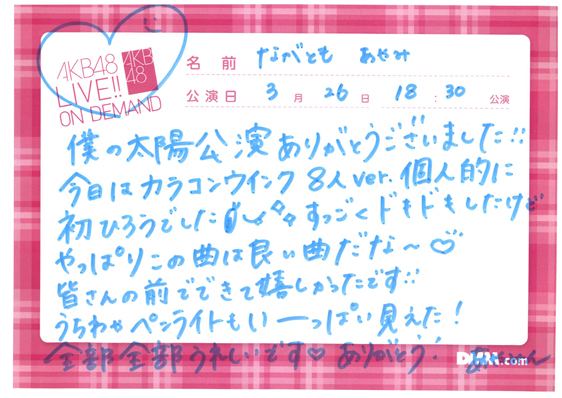 AKB48
LIVE!!
ON DEMAND
AKB
48
名 前 ながとも あやみ
公演日 3 月 26 日 18 : 30 公演
僕の太陽公演ありがとうございました!!
今日はカラコンウインク 8人ver. 個人的に
初ひろうでした すっごくドキドキしたけど
やっぱりこの曲は良い曲だな〜♡
皆さんの前でできて嬉しかったです!!
うちわやペンライトもいーっぱい見えた!
全部全部うれしいです♡ ありがとう!
DMM.com